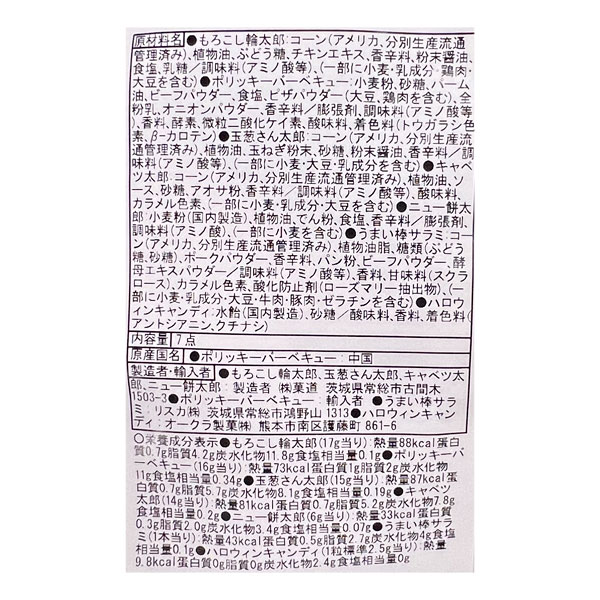 原材料名●もろこし輪太郎:コーン(アメリカ、分別生産流通
管理済み)、植物油、ぶどう糖、チキンエキス、香辛料、粉末醤油、
食塩、乳糖/調味料(アミノ酸等)、(一部に小麦・乳成分・鶏肉・
大豆を含む)●ポリッキーバーベキュー:小麦粉、砂糖、パーム
油、ビーフパウダー、食塩、ピザパウダー(大豆、鶏肉を含む)、全
粉乳、オニオンパウダー、香辛料/膨張剤、調味料(アミノ酸等
)、香料、酵素、微粒二酸化ケイ素、酸味料、着色料(トウガラシ色
素、β-カロテン)●玉葱さん太郎:コーン(アメリカ、分別生産流
通管理済み)、植物油、玉ねぎ粉末、砂糖、粉末醤油、香辛料/調味
料(アミノ酸等)、(一部に小麦・大豆・乳成分を含む)●キャベ
ツ太郎:コーン(アメリカ、分別生産流通管理済み)、植物油、ソ
ース、砂糖、アオサ粉、香辛料/調味料(アミノ酸等)、酸味料、
カラメル色素、(一部に小麦・乳成分・大豆を含む)●ニュー餅太
郎:小麦粉(国内製造)、植物油、でん粉、食塩、香辛料/膨張剤、
調味料(アミノ酸)、(一部に小麦を含む)●うまい棒サラミ:コ
ーン(アメリカ、分別生産流通管理済み)、植物油脂、糖類(ぶどう
糖、砂糖)、ポークパウダー、香辛料、パン粉、ビーフパウダー、酵
母エキスパウダー/調味料(アミノ酸等)、香料、甘味料(スクラ
ロース)、カラメル色素、酸化防止剤(ローズマリー抽出物)、(一
部に小麦・乳成分・大豆・牛肉・豚肉・ゼラチンを含む)●ハロウ
ィンキャンディ:水飴(国内製造)、砂糖/酸味料、香料、着色料(
アントシアニン、クチナシ)
内容量 7点
原産国名 ●ポリッキーバーベキュー:中国
製造者・輸入者 ●もろこし輪太郎、玉葱さん太郎、キャベツ太
郎、ニュー餅太郎:製造者 ㈱菓道 茨城県常総市古間木
1503-3●ポリッキーバーベキュー:輸入者 ●うまい棒サラ
ミ:リスカ㈱ 茨城県常総市鴻野山 1313●ハロウィンキャン
ディ:オークラ製菓㈱ 熊本市南区護藤町 861-6
○栄養成分表示●もろこし輪太郎(17g当り):熱量88kcal蛋白
質0.7g脂質4.2g炭水化物11.8g食塩相当量0.1g●ポリッキーバー
ベキュー(16g当り):熱量73kcal蛋白質1g脂質2g炭水化物
11g食塩相当量0.34g●玉葱さん太郎(15g当り):熱量87kcal蛋
白質0.7g脂質5.7g炭水化物8.1g食塩相当量0.19g●キャベツ
太郎(14g当り):熱量81kcal蛋白質0.7g脂質5.2g炭水化物7.8g
食塩相当量0.2g●ニュー餅太郎(6g当り):熱量33kcal蛋白質
0.3g脂質2.0g炭水化物3.4g食塩相当量0.07g●うまい棒サラ
ミ(1本当り):熱量43kcal蛋白質0.5g脂質2.7g炭水化物4.7g食塩
相当量0.1g●ハロウィンキャンディ(1粒標準2.5g当り):熱量
9.8kcal蛋白質0g脂質0g炭水化物2.4g食塩相当量0g